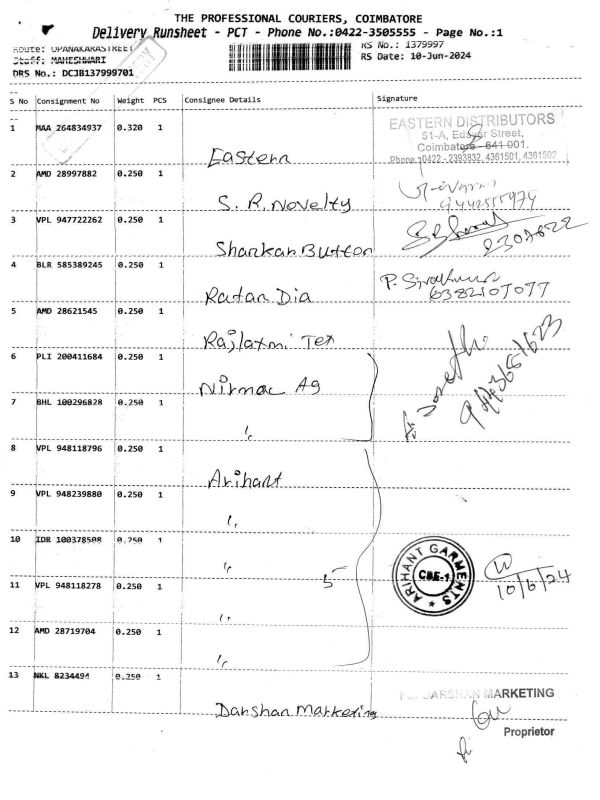 THE PROFESSIONAL COURIERS, COIMBATORE
Delivery Runsheet - PCT - Phone No.:0422-3505555 - Page No.:1
Route: OPANAKARASTREET
RS No.: 1379997
Staff: MAHESHWARI
RS Date: 10-Jun-2024
DRS No.: DCJB137999701
S No Consignment No Weight PCS Consignee Details Signature
1 MAA 264834937 0.320 1 Eastern
EASTERN DISTRIBUTORS
Street,
Coimbatore - 641 001.
Phone : 0422 - 2393832, 4361501, 4361502
2 AMD 28997882 0.250 1 S. R. Novelty
3 VPL 947722262 0.250 1 Shankar Button
4 BLR 585389245 0.250 1 Ratan Dia
5 AMD 28621545 0.250 1 Rajlaxmi Tex
6 PLI 200411684 0.250 1 Nirmac Ag
7 BHL 100296828 0.250 1 "
8 VPL 948118796 0.250 1 Arihant
9 VPL 948239880 0.250 1 "
10 IDR 100378508 0.250 1 "
5
ARIHANT GARMENTS
CBE-1
10/6/24
11 VPL 948118278 0.250 1 "
12 AMD 28719704 0.250 1 "
13 NKL 8234494 0.250 1 Darshan Marketing
DARSHAN MARKETING
Proprietor